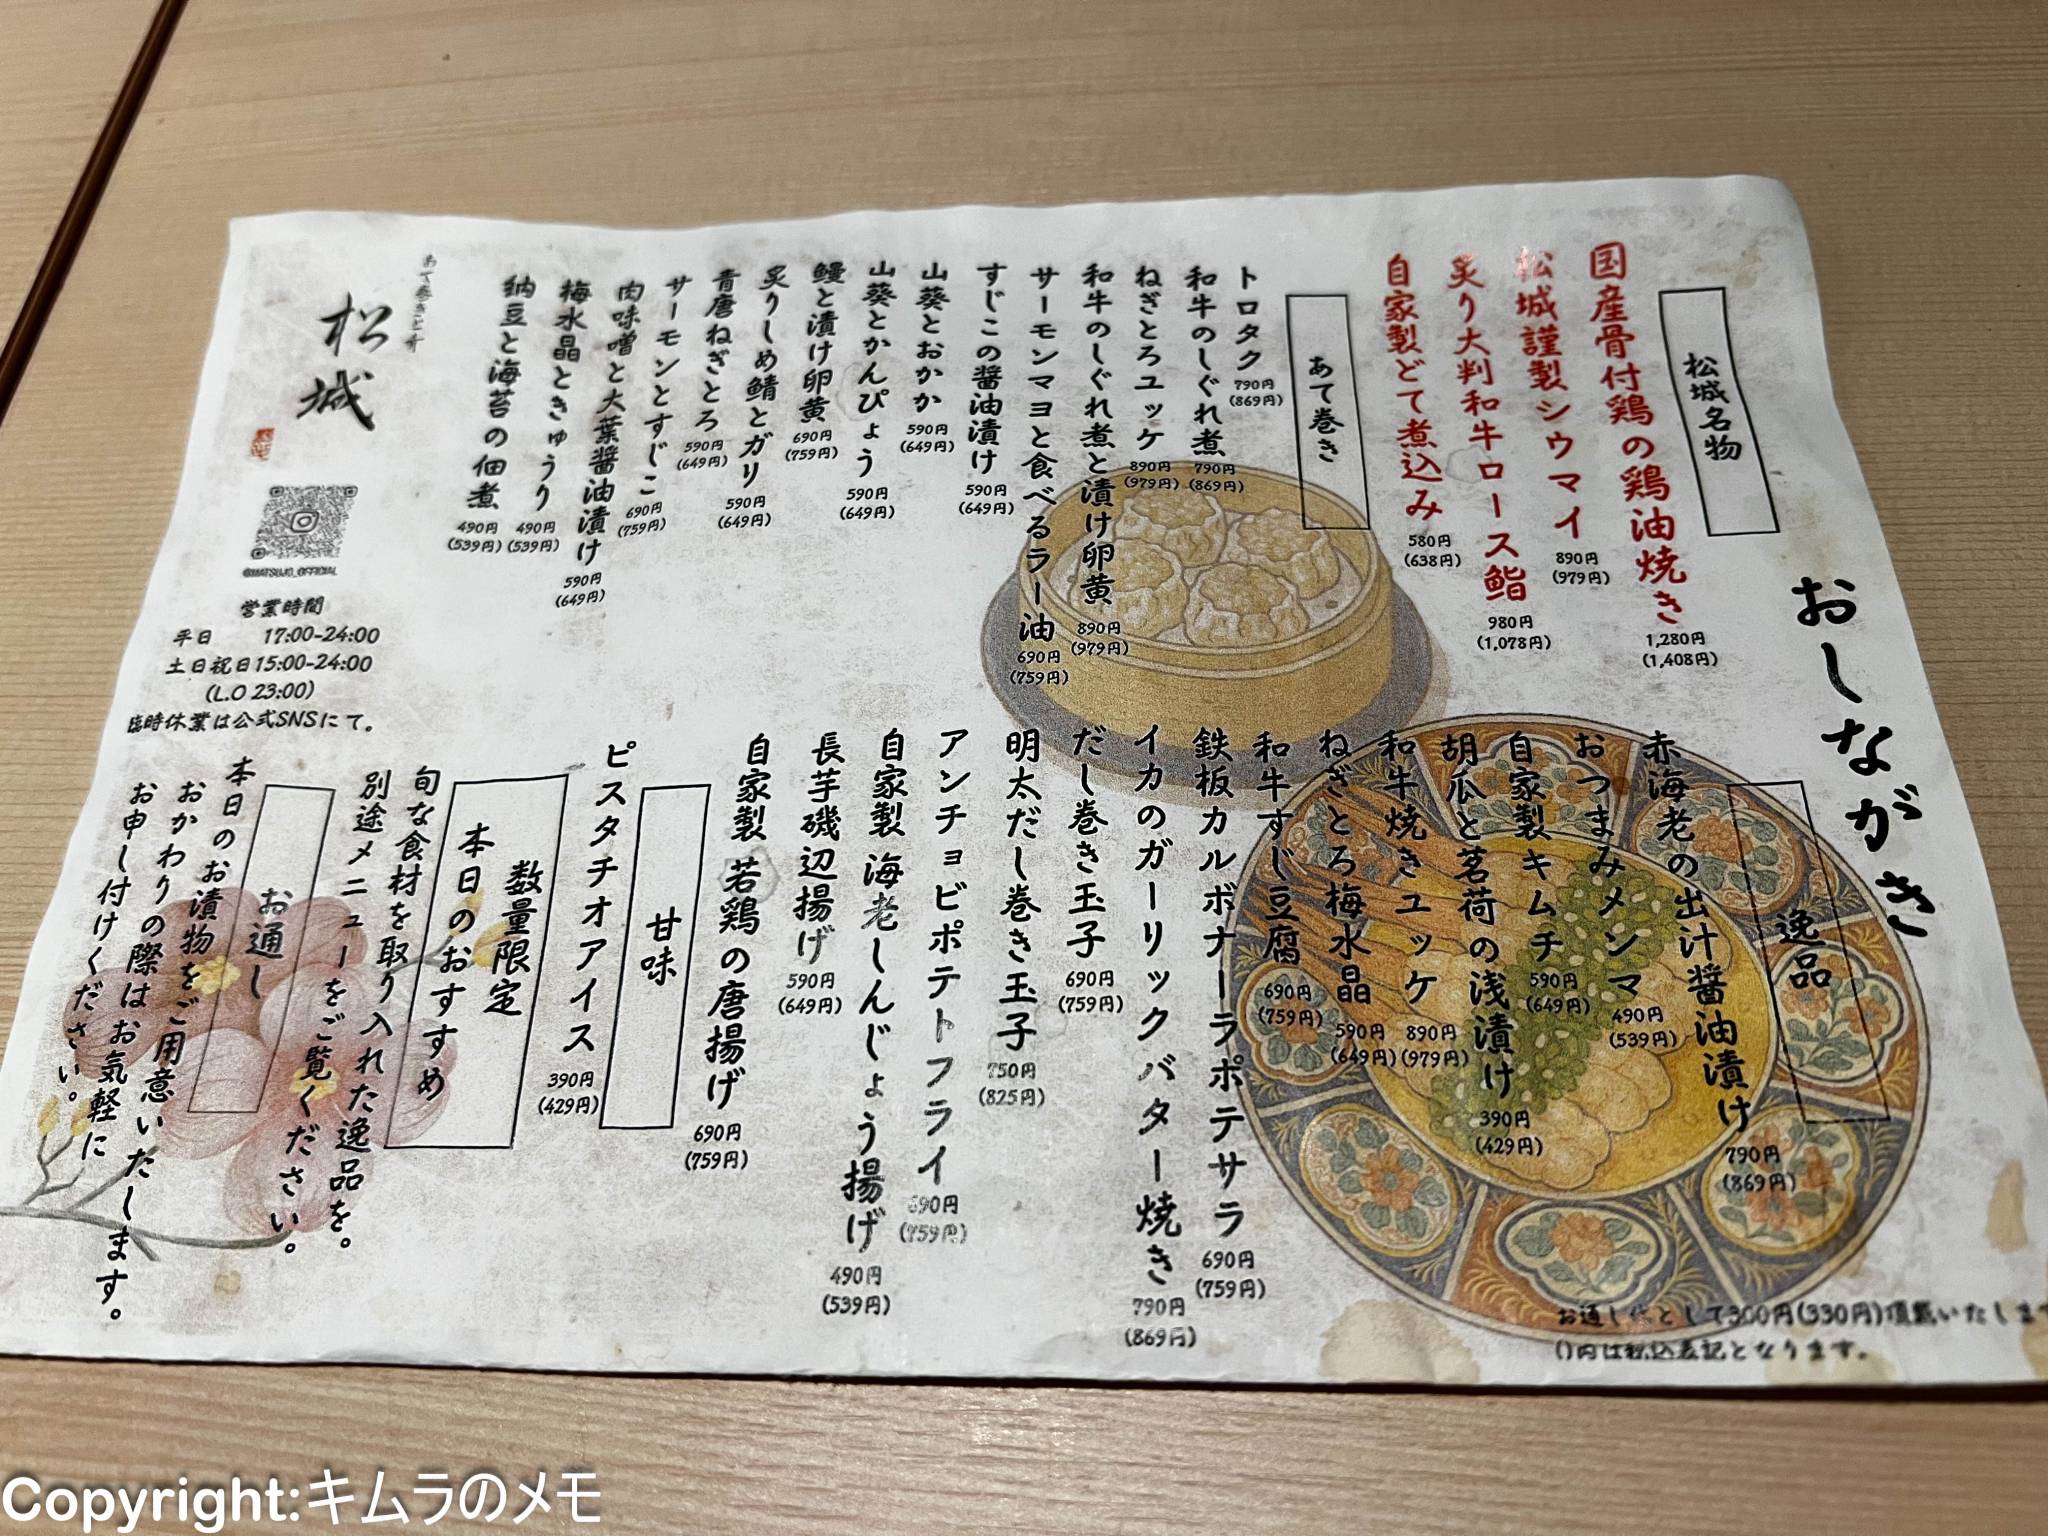 おしながき
松城名物
国産骨付鶏の鶏油焼き
1,280円
(1,408円)
松城謹製シウマイ
890円
(979円)
炙り大判和牛ロース鮨
980円
(1,078円)
自家製どて煮込み
580円
(638円)
あて巻き
トロタク
790円
(869円)
和牛のしぐれ煮
790円
(869円)
ねぎとろユッケ
890円
(979円)
和牛のしぐれ煮と漬け卵黄
890円
(979円)
サーモンマヨと食べるラー油
690円
(759円)
すじこの醤油漬け
590円
(649円)
山葵とおかか
590円
(649円)
山葵とかんぴょう
590円
(649円)
鰻と漬け卵黄
690円
(759円)
炙りしめ鯖とガリ
590円
(649円)
青唐ねぎとろ
590円
(649円)
サーモンとすじこ
690円
(759円)
肉味噌と大葉醤油漬け
590円
(649円)
梅水晶ときゅうり
490円
(539円)
納豆と海苔の佃煮
490円
(539円)
逸品
赤海老の出汁醤油漬け
790円
(869円)
おつまみメンマ
490円
(539円)
自家製キムチ
590円
(649円)
胡瓜と茗荷の浅漬け
390円
(429円)
和牛焼きユッケ
890円
(979円)
ねぎとろ梅水晶
590円
(649円)
和牛すじ豆腐
690円
(759円)
鉄板カルボナーラポテサラ
690円
(759円)
イカのガーリックバター焼き
790円
(869円)
だし巻き玉子
690円
(759円)
明太だし巻き玉子
750円
(825円)
アンチョビポテトフライ
690円
(759円)
自家製 海老しんじょう揚げ
490円
(539円)
長芋磯辺揚げ
590円
(649円)
自家製 若鶏の唐揚げ
690円
(759円)
甘味
ピスタチオアイス
390円
(429円)
数量限定
本日のおすすめ
旬な食材を取り入れた逸品を。
別途メニューをご覧ください。
お通し
本日のお漬物をご用意いたします。
おかわりの際はお気軽に
お申し付けください。
あて巻きと肴
松城
@MATSUJO_OFFICIAL
営業時間
平日 17:00-24:00
土日祝日15:00-24:00
(L.O 23:00)
臨時休業は公式SNSにて。
お通し代として300円(330円)頂戴いたします
()円は税込表記となります。
Copyright:キムラのメモ